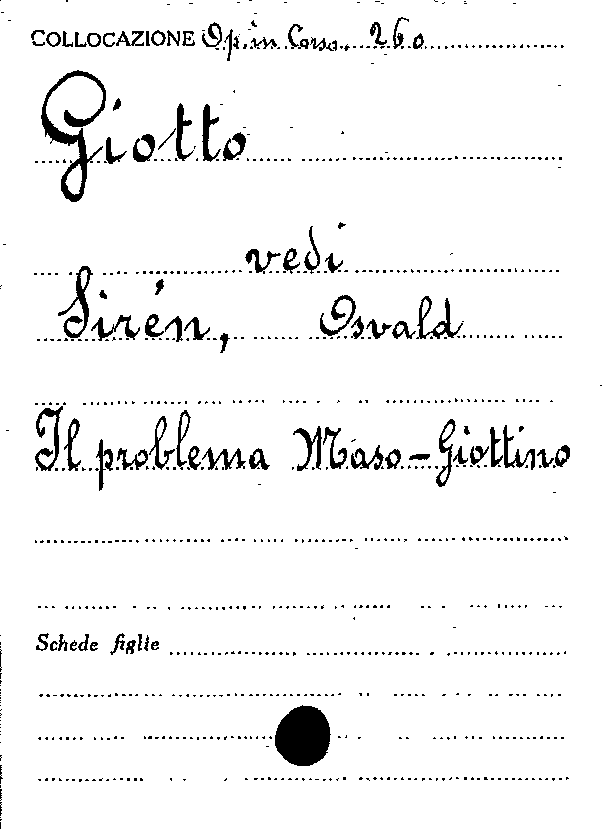 COLLOCAZIONE Op. in Corso. 260
Giotto
vedi
Sirén, Osvald
Il problema Maso-Giottino
Schede figlie